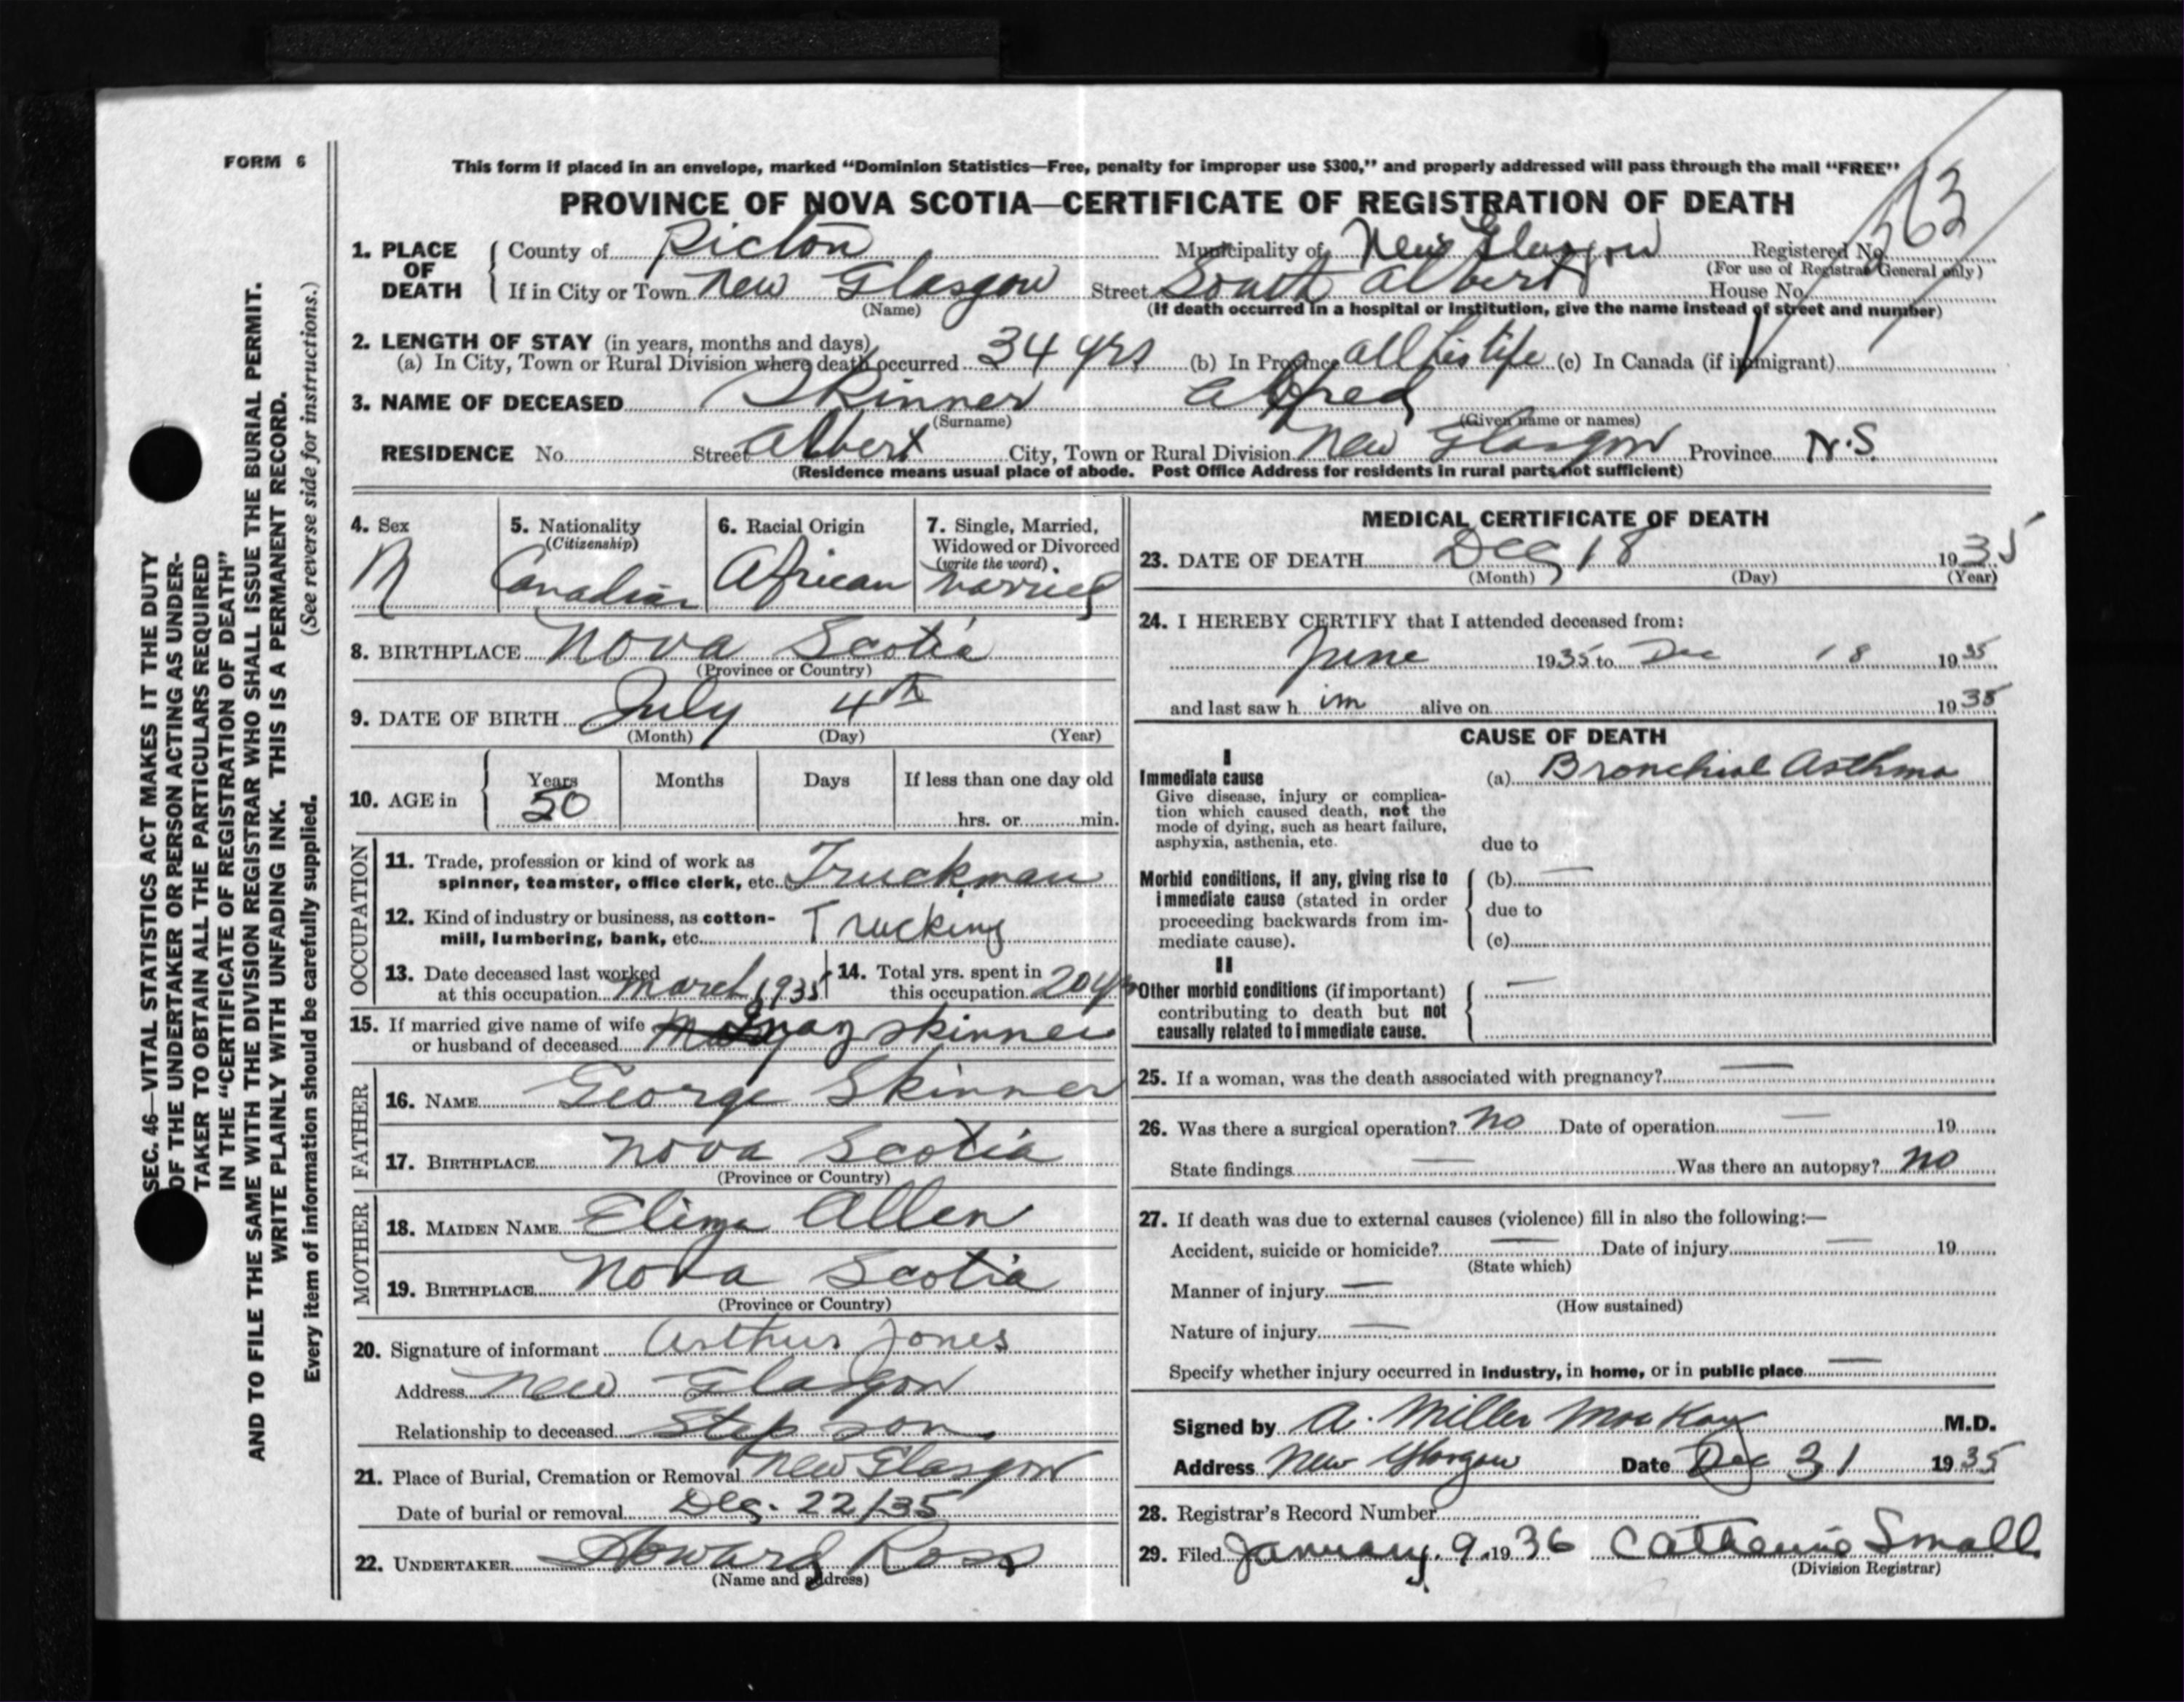 FORM 6
This form if placed in an envelope, marked “Dominion Statistics—Free, penalty for improper use $300,” and properly addressed will pass through the mail “FREE”
PROVINCE OF NOVA SCOTIA—CERTIFICATE OF REGISTRATION OF DEATH
1. PLACE OF DEATH
County of Pictou Municipality of New Glasgow Registered No.
(For use of Registrar General only)
If in City or Town New Glasgow Street South Albert House No.
(Name) (If death occurred in a hospital or institution, give the name instead of street and number)
2. LENGTH OF STAY (in years, months and days)
(a) In City, Town or Rural Division where death occurred 34 yrs (b) In Province all his life (c) In Canada (if immigrant)
3. NAME OF DECEASED Skinner Alfred
(Surname) (Given name or names)
RESIDENCE No. Street Albert City, Town or Rural Division New Glasgow Province N.S.
(Residence means usual place of abode. Post Office Address for residents in rural parts not sufficient)
4. Sex M
5. Nationality (Citizenship) Canadian
6. Racial Origin African
7. Single, Married, Widowed or Divorced (write the word) Married
8. BIRTHPLACE Nova Scotia
(Province or Country)
9. DATE OF BIRTH July 4th
(Month) (Day) (Year)
10. AGE in Years 50 Months Days If less than one day old hrs. or min.
OCCUPATION
11. Trade, profession or kind of work as
spinner, teamster, office clerk, etc. Truckman
12. Kind of industry or business, as cotton-
mill, lumbering, bank, etc. Trucking
13. Date deceased last worked
at this occupation March 1935
14. Total yrs. spent in
this occupation 20 yrs
15. If married give name of wife
or husband of deceased Skinner
FATHER
16. NAME George Skinner
17. BIRTHPLACE Nova Scotia
(Province or Country)
MOTHER
18. MAIDEN NAME Allen
19. BIRTHPLACE Nova Scotia
(Province or Country)
20. Signature of informant Arthur Jones
Address New Glasgow
Relationship to deceased Step son
21. Place of Burial, Cremation or Removal New Glasgow
Date of burial or removal Dec. 22/35
22. UNDERTAKER Howard Ross
(Name and address)
MEDICAL CERTIFICATE OF DEATH
23. DATE OF DEATH Dec 18 1935
(Month) (Day) (Year)
24. I HEREBY CERTIFY that I attended deceased from:
June 1935 to Dec 18 1935
and last saw him alive on 1935
CAUSE OF DEATH
I
Immediate cause (a) Bronchial Asthma
Give disease, injury or complica-
tion which caused death, not the
mode of dying, such as heart failure,
asphyxia, asthenia, etc. due to
Morbid conditions, if any, giving rise to (b) —
immediate cause (stated in order due to
proceeding backwards from im-
mediate cause). (c)
II
Other morbid conditions (if important) —
contributing to death but not
causally related to immediate cause.
25. If a woman, was the death associated with pregnancy? —
26. Was there a surgical operation? No Date of operation — 19
State findings — Was there an autopsy? No
27. If death was due to external causes (violence) fill in also the following:—
Accident, suicide or homicide? — Date of injury — 19
(State which)
Manner of injury —
(How sustained)
Nature of injury —
Specify whether injury occurred in industry, in home, or in public place —
Signed by A. Miller MacKay M.D.
Address New Glasgow Date Dec 31 1935
28. Registrar's Record Number
29. Filed January 9 1936 Catherine Small
(Division Registrar)
SEC. 46—VITAL STATISTICS ACT MAKES IT THE DUTY
OF THE UNDERTAKER OR PERSON ACTING AS UNDER-
TAKER TO OBTAIN ALL THE PARTICULARS REQUIRED
IN THE “CERTIFICATE OF REGISTRATION OF DEATH”
AND TO FILE THE SAME WITH THE DIVISION REGISTRAR WHO SHALL ISSUE THE BURIAL PERMIT.
WRITE PLAINLY WITH UNFADING INK. THIS IS A PERMANENT RECORD.
Every item of information should be carefully supplied. (See reverse side for instructions.)